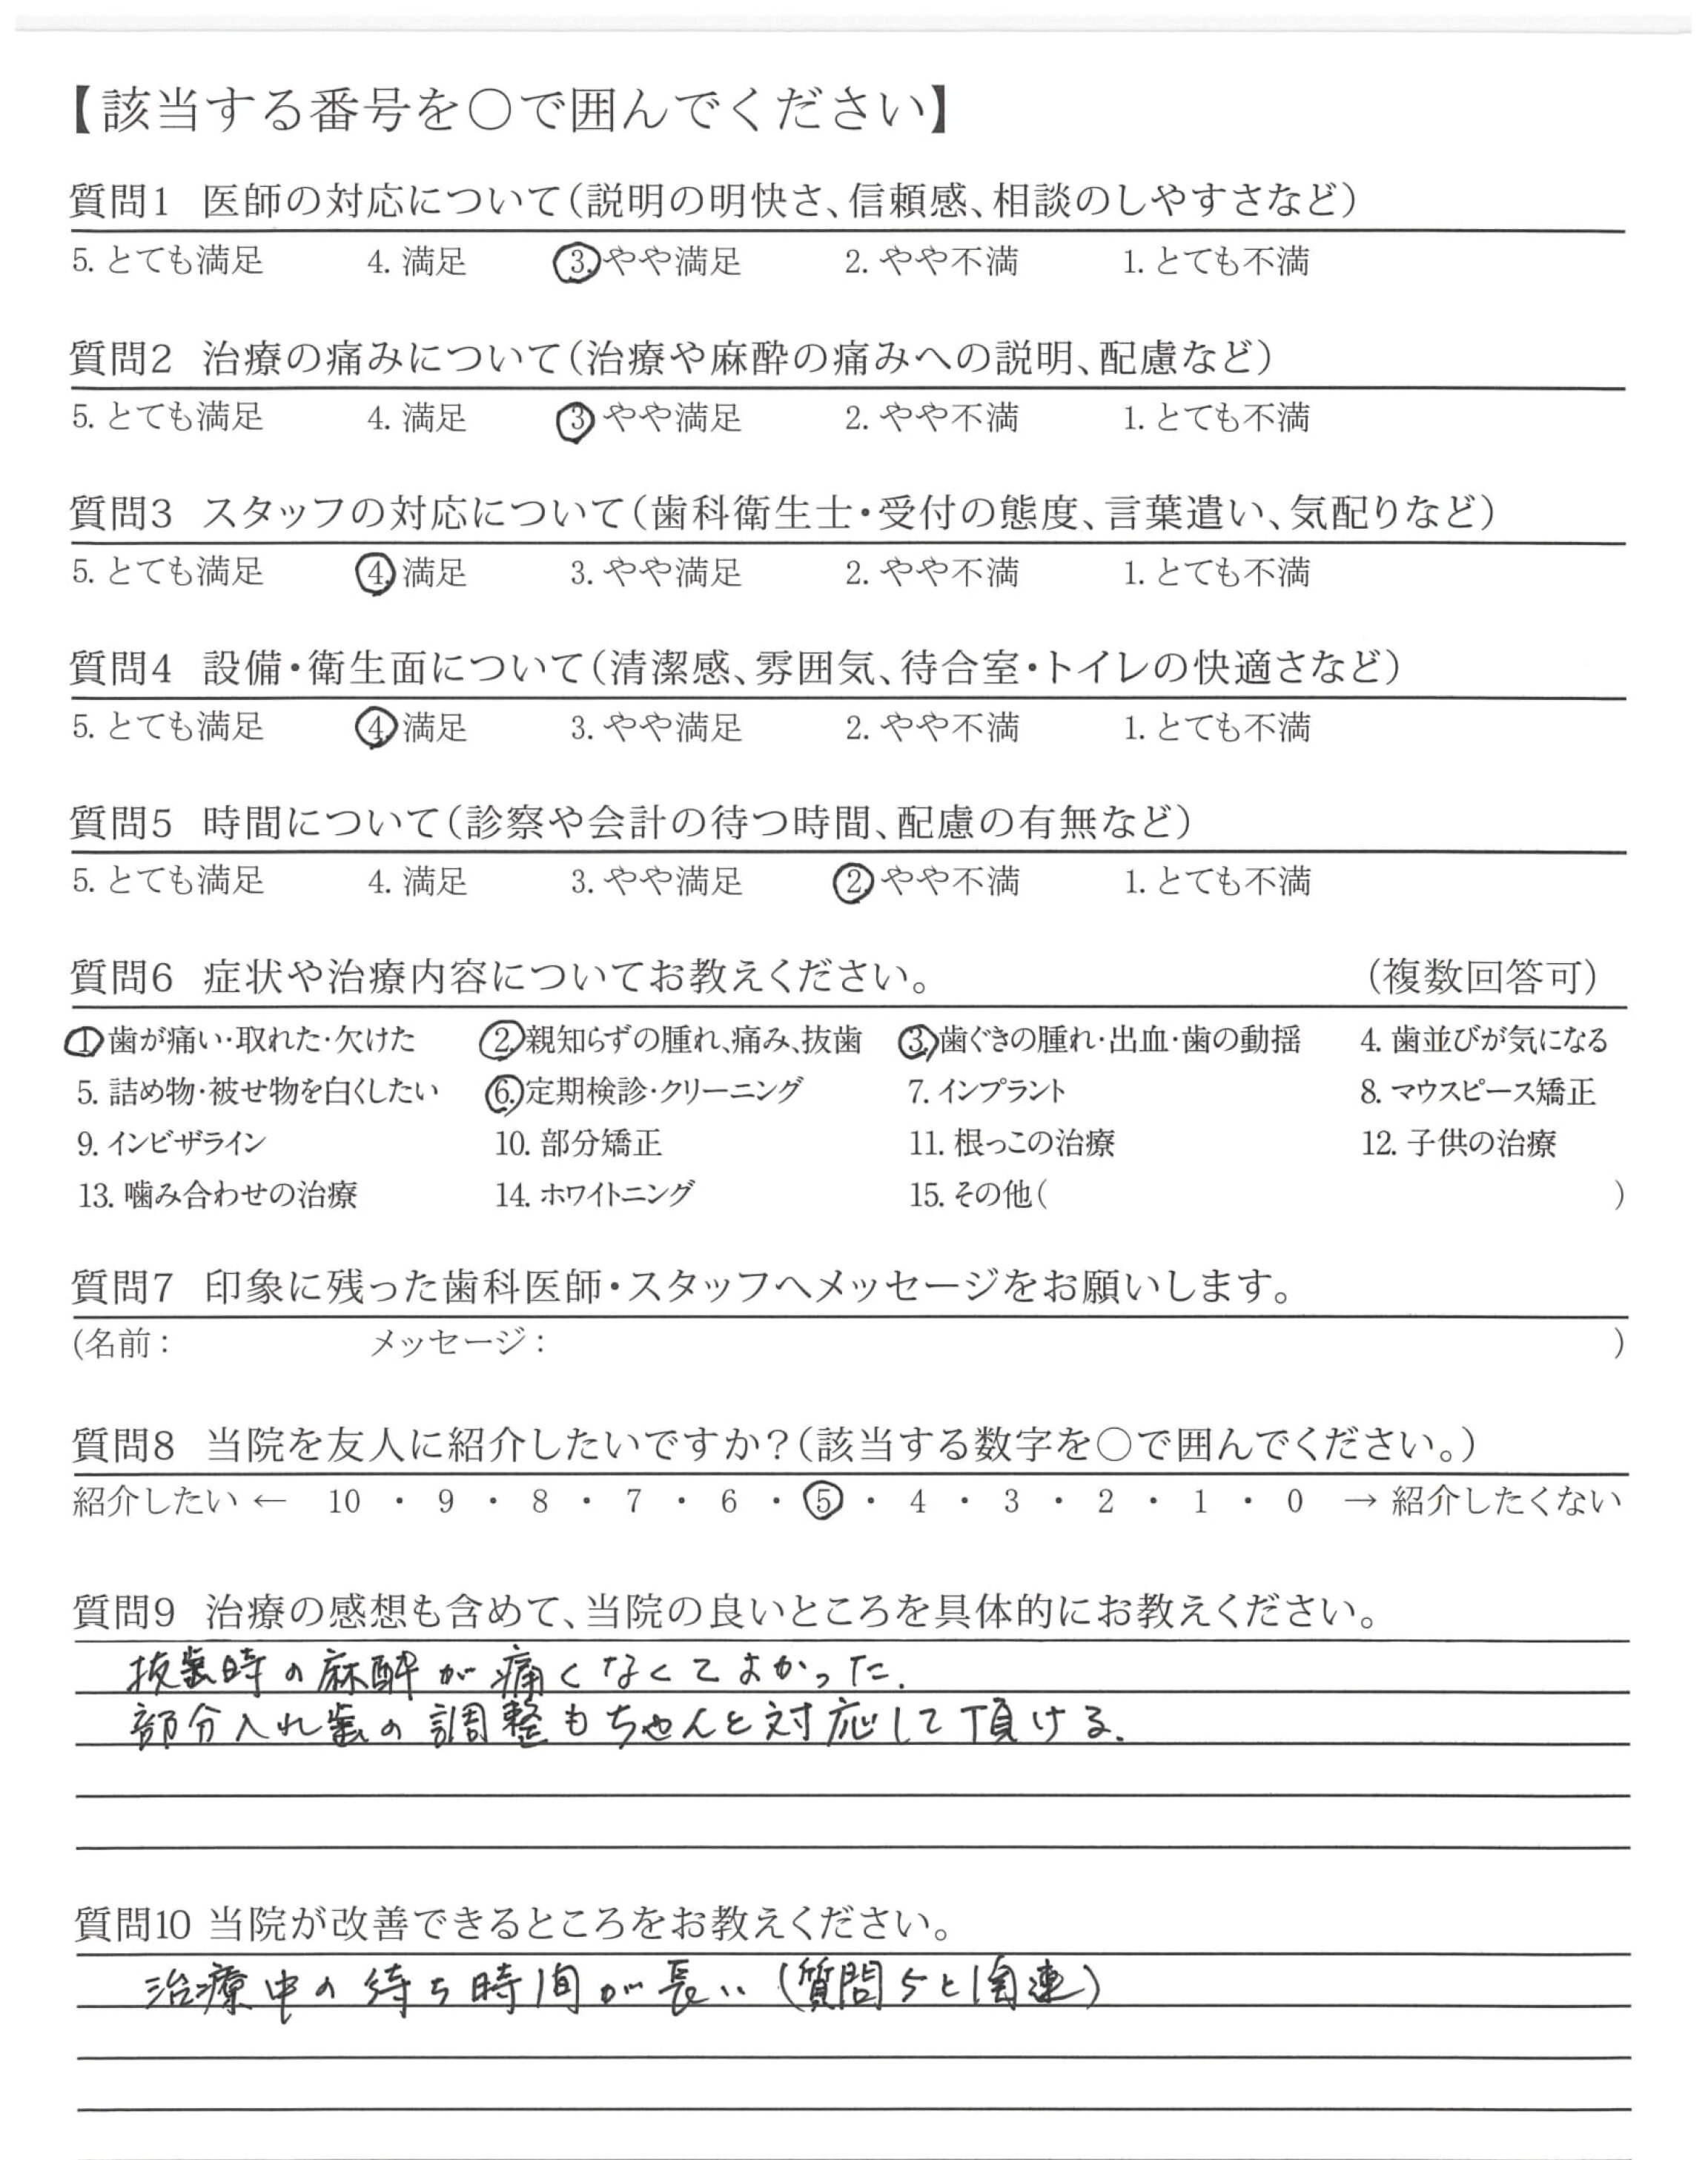 【該当する番号を○で囲んでください】
質問1 医師の対応について(説明の明快さ、信頼感、相談のしやすさなど)
5. とても満足 4. 満足 3. やや満足 2. やや不満 1. とても不満
質問2 治療の痛みについて(治療や麻酔の痛みへの説明、配慮など)
5. とても満足 4. 満足 3 やや満足 2. やや不満 1. とても不満
質問3 スタッフの対応について(歯科衛生士・受付の態度、言葉遣い、気配りなど)
5. とても満足 4. 満足 3. やや満足 2. やや不満 1. とても不満
質問4 設備・衛生面について(清潔感、雰囲気、待合室・トイレの快適さなど)
5. とても満足 4. 満足 3. やや満足 2. やや不満 1. とても不満
質問5 時間について(診察や会計の待つ時間、配慮の有無など)
5. とても満足 4. 満足 3. やや満足 2. やや不満 1. とても不満
質問6 症状や治療内容についてお教えください。 (複数回答可)
1 歯が痛い・取れた・欠けた 2. 親知らずの腫れ、痛み、抜歯 3. 歯ぐきの腫れ・出血・歯の動揺 4. 歯並びが気になる
5. 詰め物・被せ物を白くしたい 6. 定期検診・クリーニング 7. インプラント 8. マウスピース矯正
9. インビザライン 10. 部分矯正 11. 根っこの治療 12. 子供の治療
13. 噛み合わせの治療 14. ホワイトニング 15. その他( )
質問7 印象に残った歯科医師・スタッフへメッセージをお願いします。
(名前: メッセージ: )
質問8 当院を友人に紹介したいですか?(該当する数字を○で囲んでください。)
紹介したい ← 10 ・ 9 ・ 8 ・ 7 ・ 6 ・ 5 ・ 4 ・ 3 ・ 2 ・ 1 ・ 0 → 紹介したくない
質問9 治療の感想も含めて、当院の良いところを具体的にお教えください。
抜歯時の麻酔が痛くなくてよかった.
部分入れ歯の調整もちゃんと対応して頂ける.
質問10 当院が改善できるところをお教えください。
治療中の待ち時間が長い(質問5と関連)